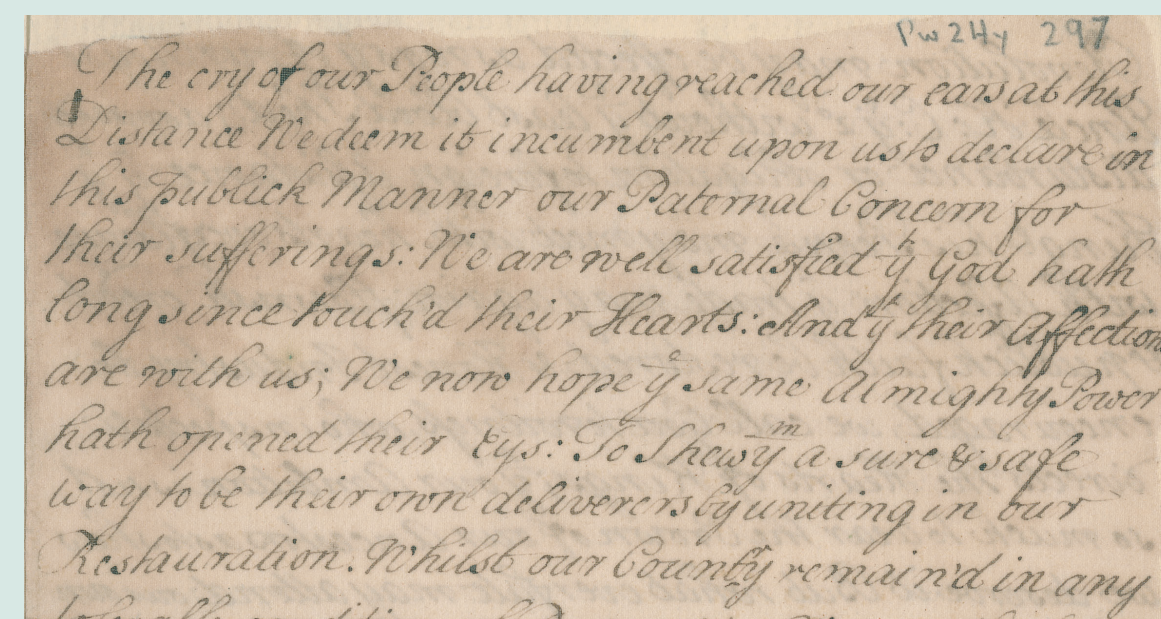 Pw2Hy 297
The cry of our People having reached our ears at this
Distance We deem it incumbent upon us to declare in
this publick Manner our Paternal Concern for
their sufferings: We are well satisfied yt God hath
long since touch'd their Hearts: And yt their Affection
are with us; We now hope ye same Almighty Power
hath opened their Eys: To Shew ym a sure & safe
way to be their own deliverers by uniting in our
Restauration. Whilst our remain'd in any